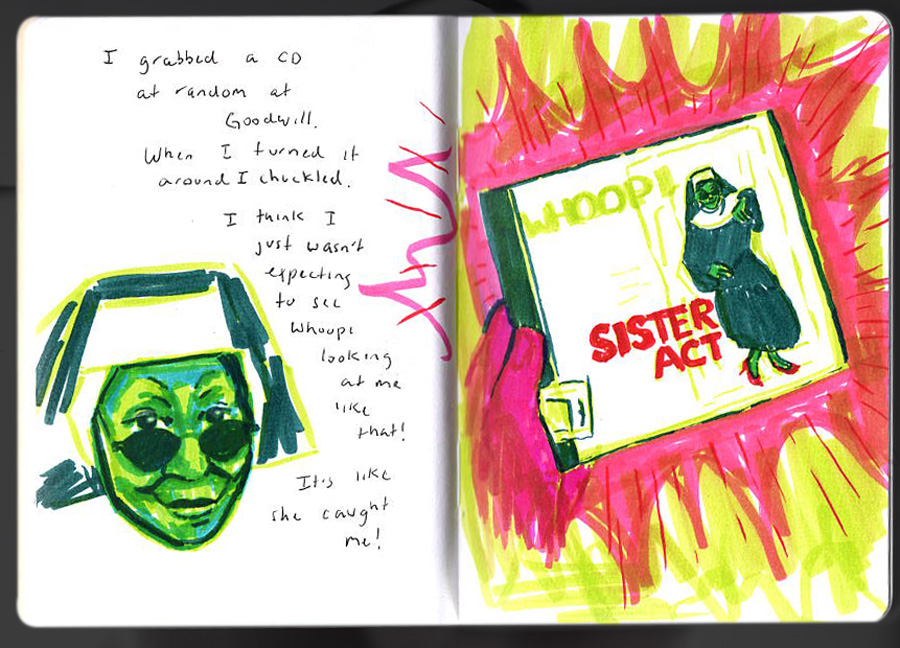 I grabbed a CD
at random at
Goodwill.
When I turned it
around I chuckled.
I think I
just wasn't
expecting
to see
Whoopi
looking
at me
like
that!
It's like
she caught
me!
WHOOPI
SISTER
ACT